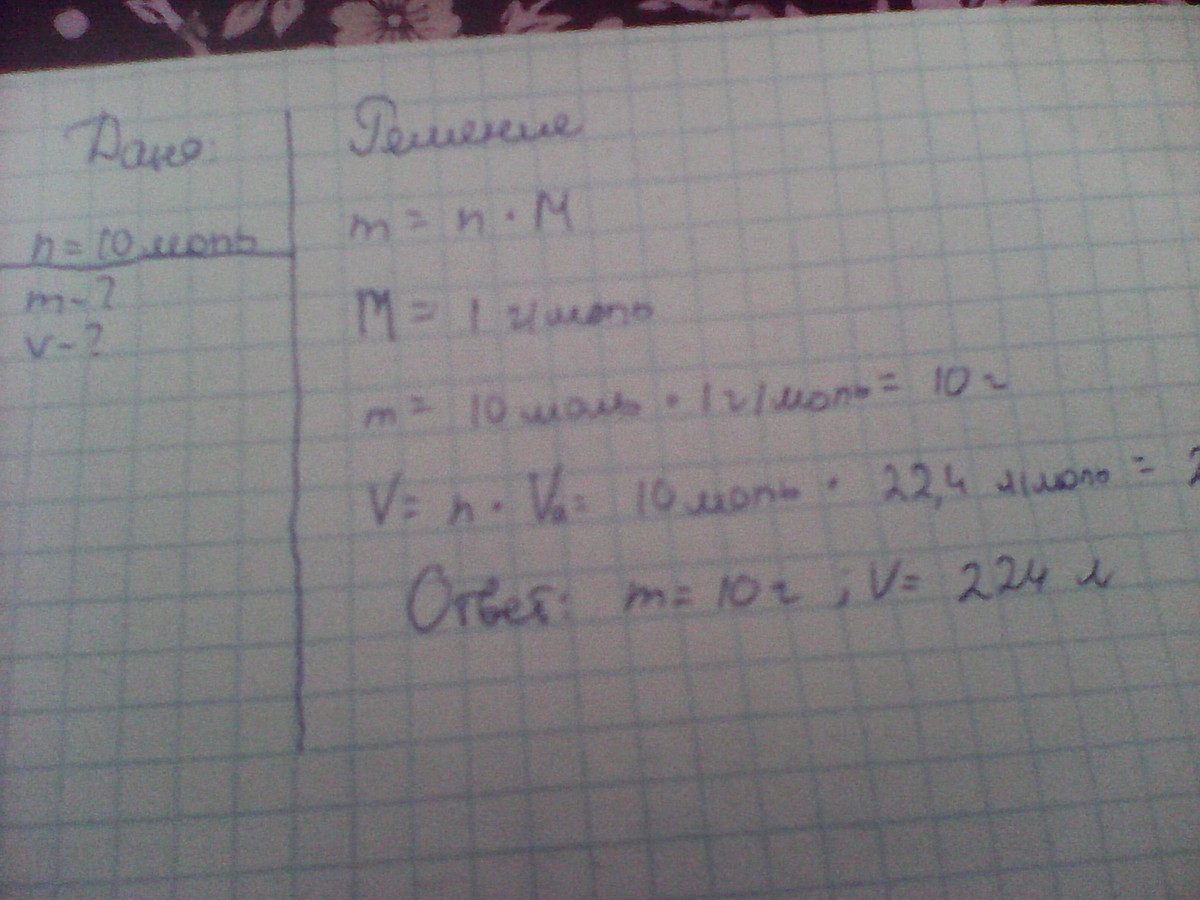 Дано:
n = 10 моль
m - ?
v - ?
Решение
m = n · M
M = 1 г/моль
m = 10 моль · 1 г/моль = 10 г
V = n · V₀ = 10 моль · 22,4 л/моль = 2
Ответ: m = 10 г ; V = 224 л